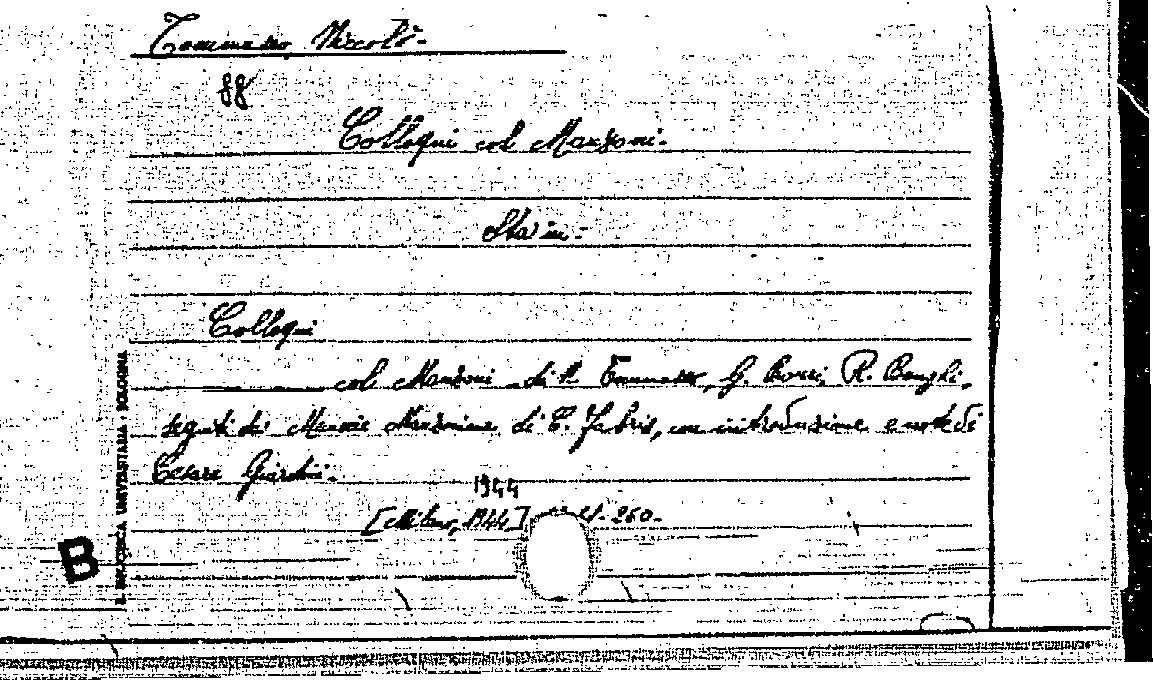 Tommaseo, Niccolò -
88
Colloqui col Manzoni -
Colloqui
col Manzoni di N. Tommaseo, G. Borri, R. Bonghi,
seguiti da Memorie Manzoniane di C. Fabris, con introduzione e note di
Cesare Giardini -
1944
[Milano, 1944] 260 -
B
R. BIBLIOTECA UNIVERSITARIA - BOLOGNA